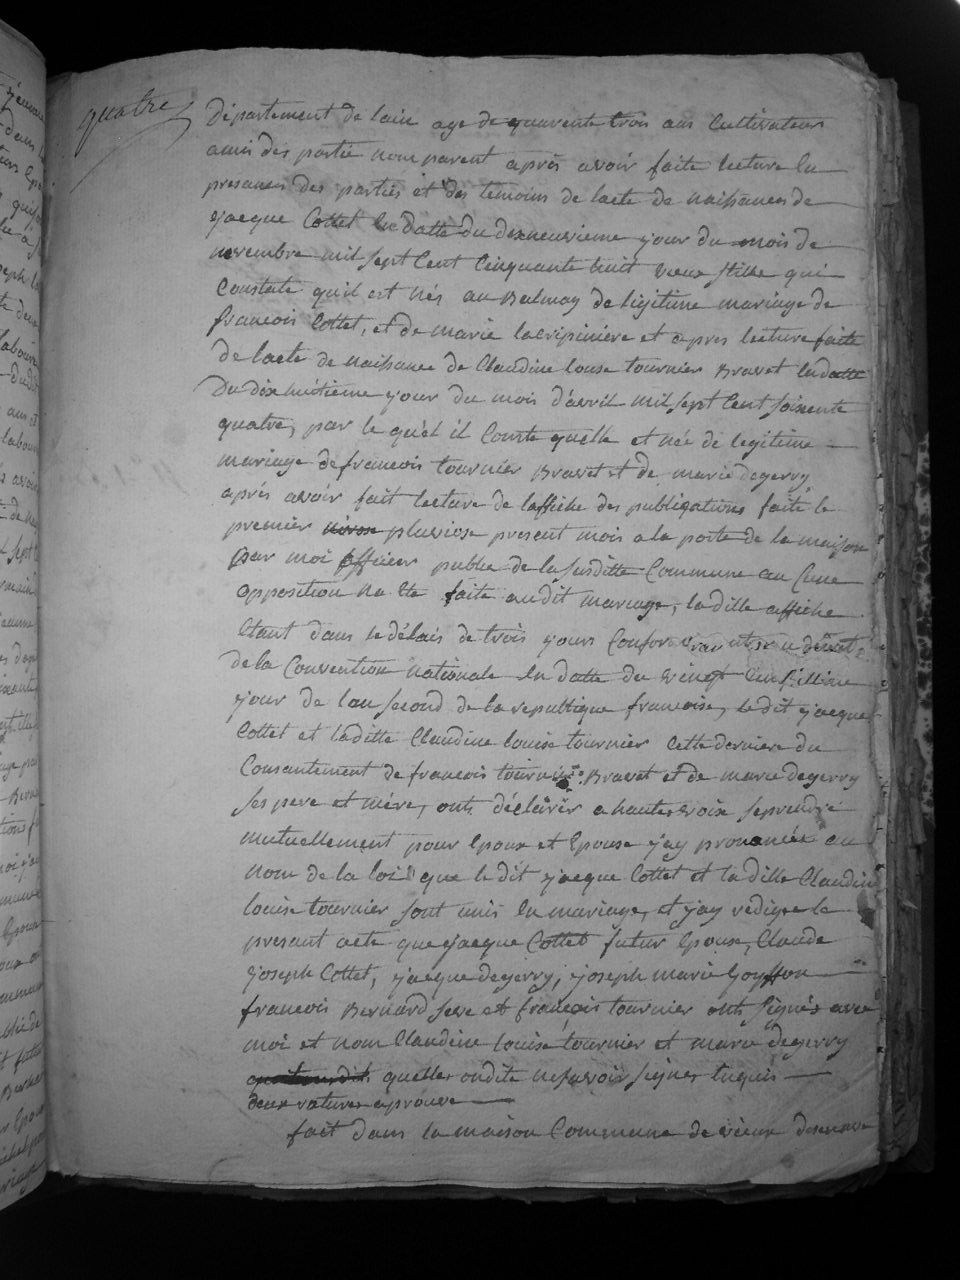 quatre
departement de lain age de quarente trois ans Cultivateur
amis des partie nom parent après avoir faite lecture En
presances des parties et des témoins de lacte de naissances de
yacque Cottet En datte du dixneuvieme your du mois de
novembre mil sept Cent Cinquante huit vieux stille qui
Constate qu'il est nés au Balmay de legitime mariage de
francois Cottet, et de marie lacrépiniere et apres lecture faite
de lacte de naissance de Claudine louise tournier Bravet En datte
Du dix huitieme your du mois d'avril mil sept Cent soixente
quatre, par le quel il Conste quelle et née de legitime
mariage de francois tournier Bravet et de marie degerry
après avoir fait lecture de laffiche des publications faite le
premier nivose pluviose present mois a la porte de la maison
par moi officier public de la susditte Commune au Cune
opposition na Ete faite audit mariage, la ditte affiche
Etant dans le délais de trois yours au decret
de la Convention nationale En datte du vingt
your de lan second de la republique francoise, le dit yacque
Cottet et laditte Claudine louise tournier Cette derniere du
Consantement de francois tournier Bravet et de marie degerry
ses pere et mère, onts déclarér a hautes voix se prendre
mutuellement pour Epoux et Epouse y'ay pronancée au
nom de la loi que le dit yacque Cottet et la ditte Claudine
louise tournier sont unis En mariage, et y'ay redigee le
presant acte que yacque Cottet futur Epoux, Claude
yoseph Cottet, yacque degerry, yoseph marie Goyffon
francois Bernard seve et françois tournier onts signés avec
moi et nom Claudine louise tournier et marie degerry
quelles ondite ne savoir signer Enquis
deux ratures aprouve
fait dans la maison Commune de vieux